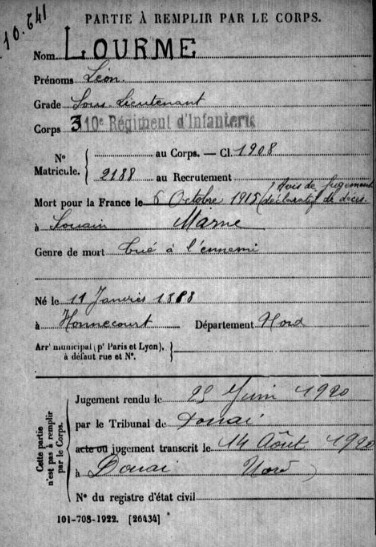 10.641
PARTIE À REMPLIR PAR LE CORPS.
Nom LOURME
Prénoms Léon
Grade Sous Lieutenant
Corps 310e Régiment d'Infanterie
N° Matricule. { au Corps. — Cl. 1908
2188 au Recrutement
Mort pour la France le 6 Octobre 1915 (Avis de jugement déclaratif de décès
à Souain Marne
Genre de mort tué à l'ennemi
Né le 11 Janvier 1888
à Honnecourt Département Nord
Arrt municipal (pr Paris et Lyon), à défaut rue et N°.
Cette partie n'est pas à remplir par le Corps.
Jugement rendu le 25 Juin 1920
par le Tribunal de Douai
acte ou jugement transcrit le 14 Août 1920
à Douai Nord
N° du registre d'état civil
101-708-1922. [26434]